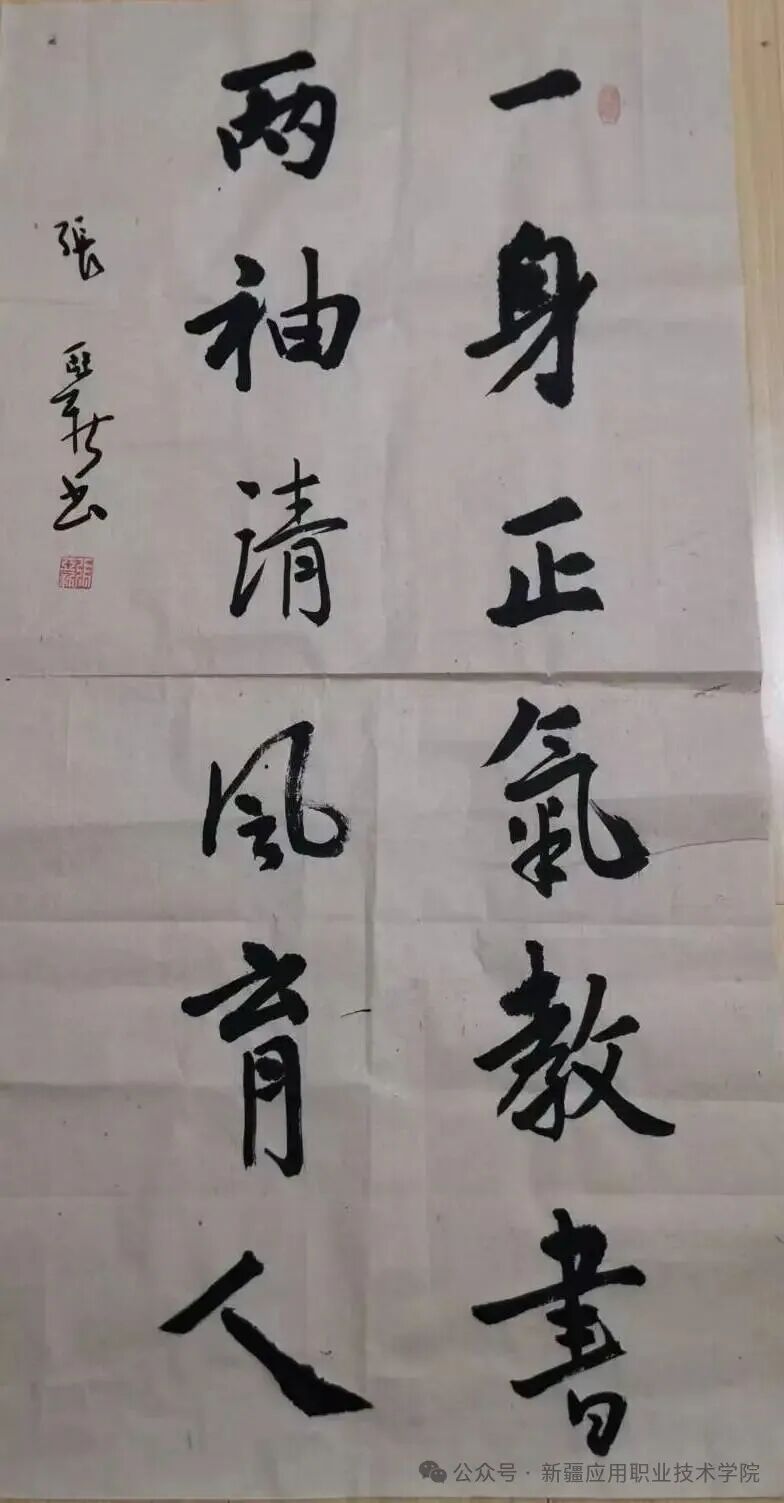 一身正氣教書
两袖清風育人
張亞新书
公众号·新疆应用职业技术学院